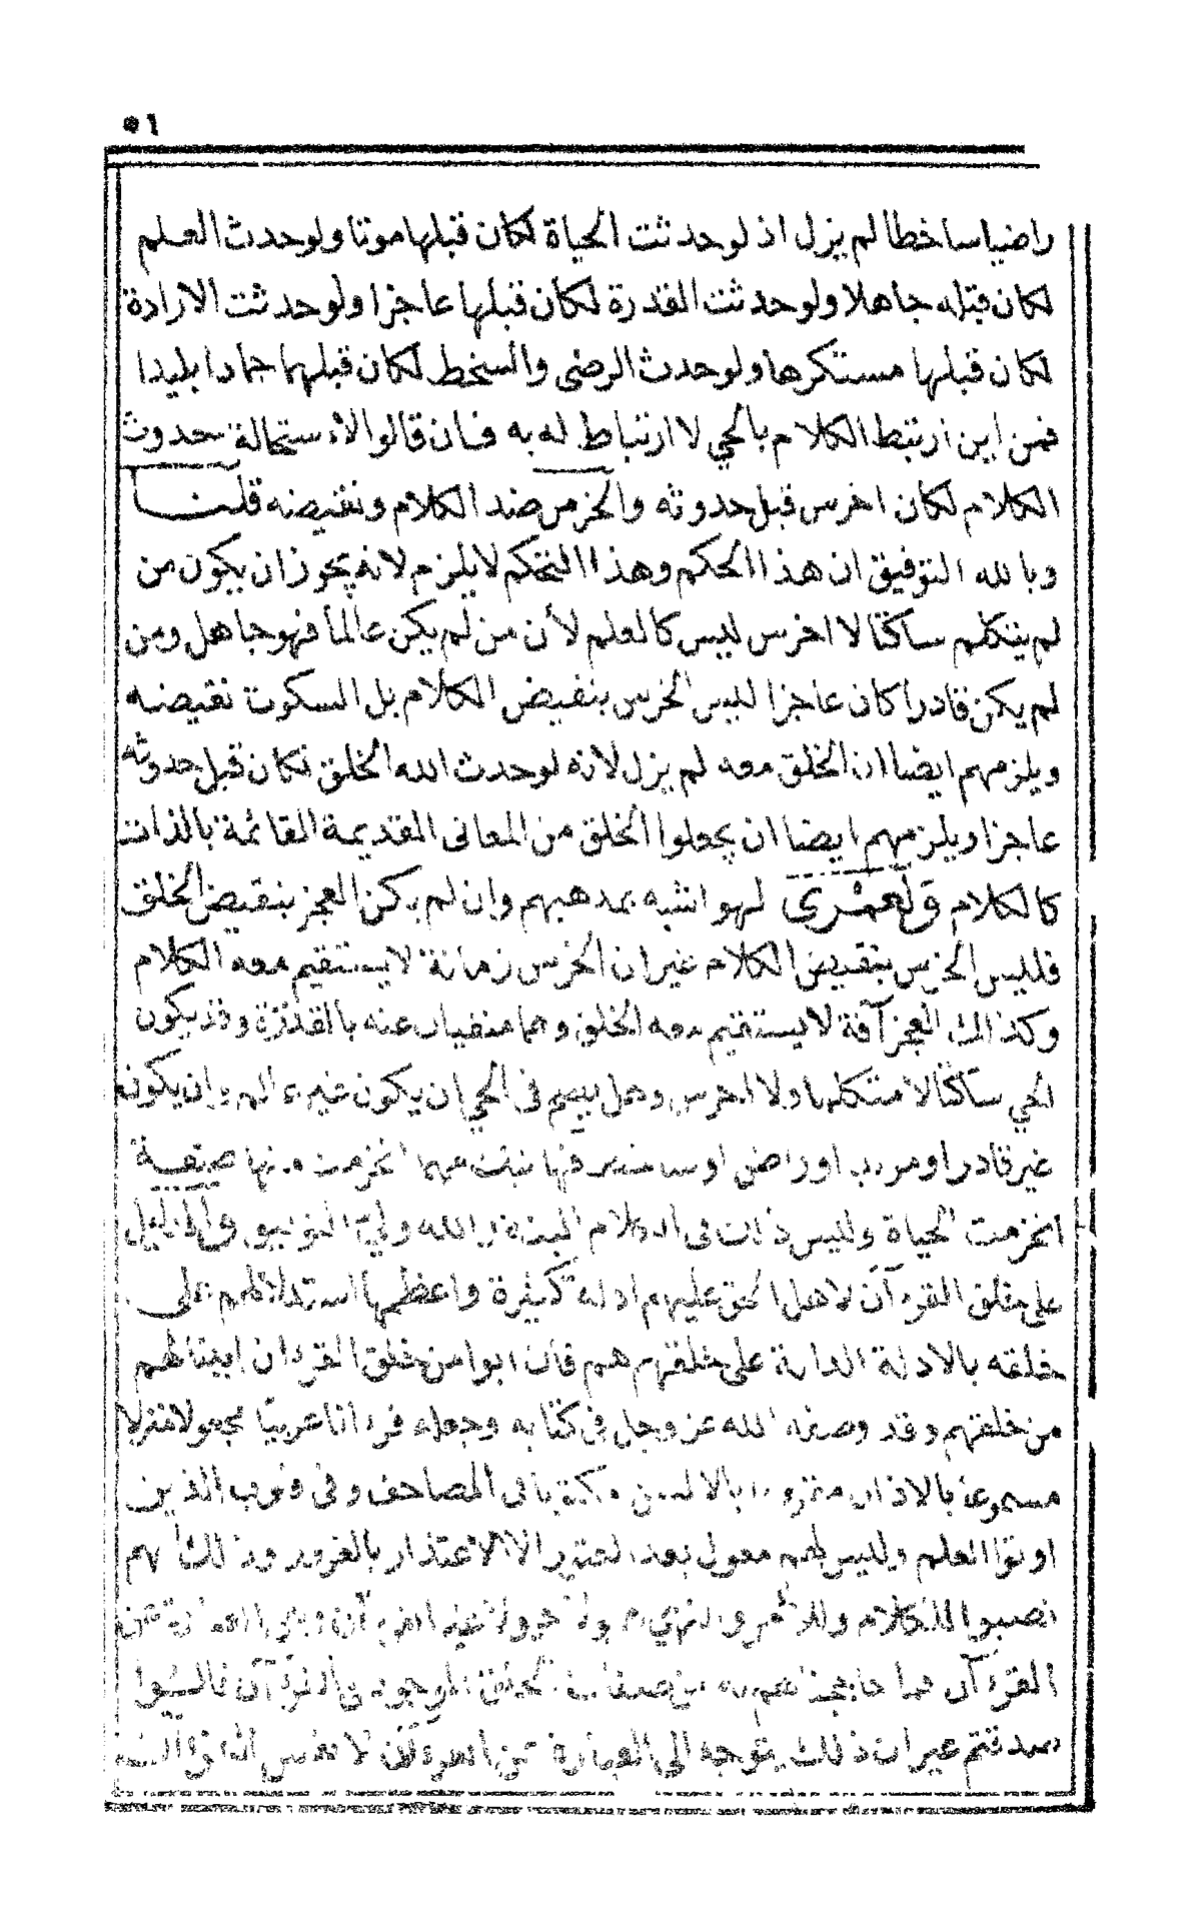 ٥٦
راضيا ساخطا لم يزل اذ لو حدثت الحياة لكان قبلها موتا ولو حدث العلم
لكان قبله جاهلا ولو حدثت القدرة لكان قبلها عاجزا ولو حدثت الارادة
لكان قبلها مستكرها ولو حدث الرضى والسخط لكان قبلهما جمادا بليدا
فمن اين ارتبط الكلام بالحي لا ارتباط له به فان قالوا لاستحالة حدوث
الكلام لكان اخرس قبل حدوثه والخرس ضد الكلام ونقيضه قلنا
وبالله التوفيق ان هذا الحكم وهذا التحكم لا يلزم لانه يجوز ان يكون من
لم يتكلم ساكتا لا اخرس ليس كالعلم لأن من لم يكن عالما فهو جاهل ومن
لم يكن قادرا كان عاجزا ليس الخرس بنقيض الكلام بل السكوت نقيضه
ويلزمهم ايضا ان الخلق معه لم يزل لانه لو حدث الله الخلق لكان قبل حدوثه
عاجزا ويلزمهم ايضا ان يجعلوا الخلق من المعانى القديمة القائمة بالذات
كالكلام ولعمرى لهو اشبه بمذهبهم وان لم يكن العجز بنقيض الخلق
فليس الخرس بنقيض الكلام غير ان الخرس زمانة لا يستقيم معه الكلام
وكذالك العجز آفة لا يستقيم معه الخلق وهما منفيان عنه بالقدرة وقد يكون
الحي ساكتا لا متكلما ولا اخرس وهل يصح فى الحي ان يكون غير عالم وان يكون
غير قادر او مريد او راض او ساخط فيها تبث مهما انخرمت منها صفة
انخرمت الحياة وليس ذلك فى الكلام البتة والله ولي التوفيق والدليل
على خلق القرءآن لاهل الحق عليهم ادلة كثيرة واعظمها استدلالهم على
خلقه بالادلة الدالة على خلقهم هم فان ابوا من خلق القرءان ابينالهم
من خلقهم وقد وصفه الله عز وجل فى كتابه وجعله قرءانا عربيا مجعولا منزلا
مسموعا بالاذان مقروءا بالالسن مكتوبا فى المصاحف وفى قلوب الذين
اوتوا العلم وليس لهم معول بعد الا الاعتذار بالغرور وذلك انهم
نصبوا للكلام وللأمر والنهي العبارة عن
القرءآن فما من صفات الخلق الموجود فى القرءآن قالوا
صدقتم غير ان ذلك يتوجه الى العبارة عن القرءآن لا نفس